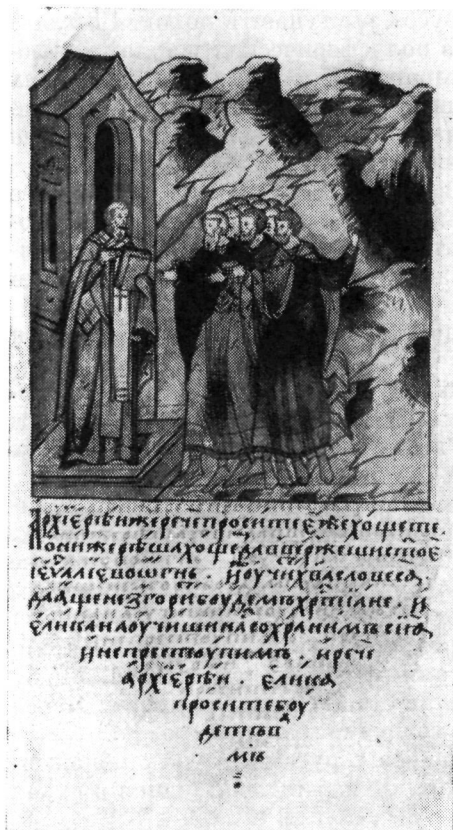 Архїерѣи же рече просите еже хощете.
Они же рѣша хоще да ввержеши стое
еѵⷢ҇алїе въ огнь. имъ оучих҃ васловеса
да аще не згоритъ боудемъ хрⷭ҇тїане. и
елика наоучиши на сохранимъ сїѧ
и непрестоупимъ. и рече
архїерѣи. елика
просите боу
детъ в
мъ